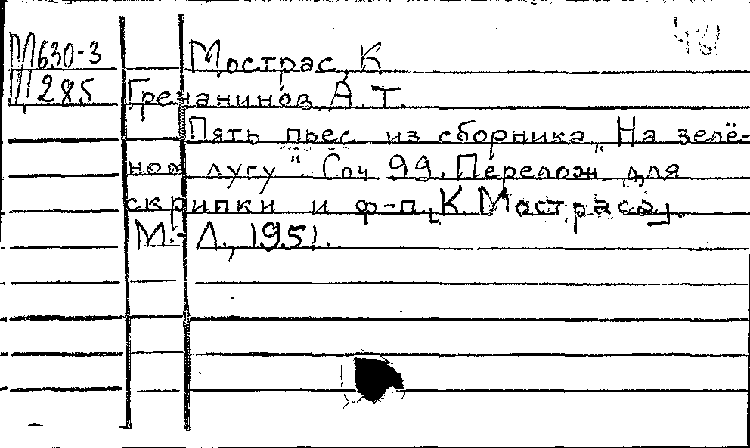 М630-3 Мострас, К.
Ц285 Гречанинов А. Т.
Пять пьес из сборника „На зелё-
ном лугу" Соч 99. Перелож. для
скрипки и ф-п. [К. Мостраса].
М.-Л., 1951.